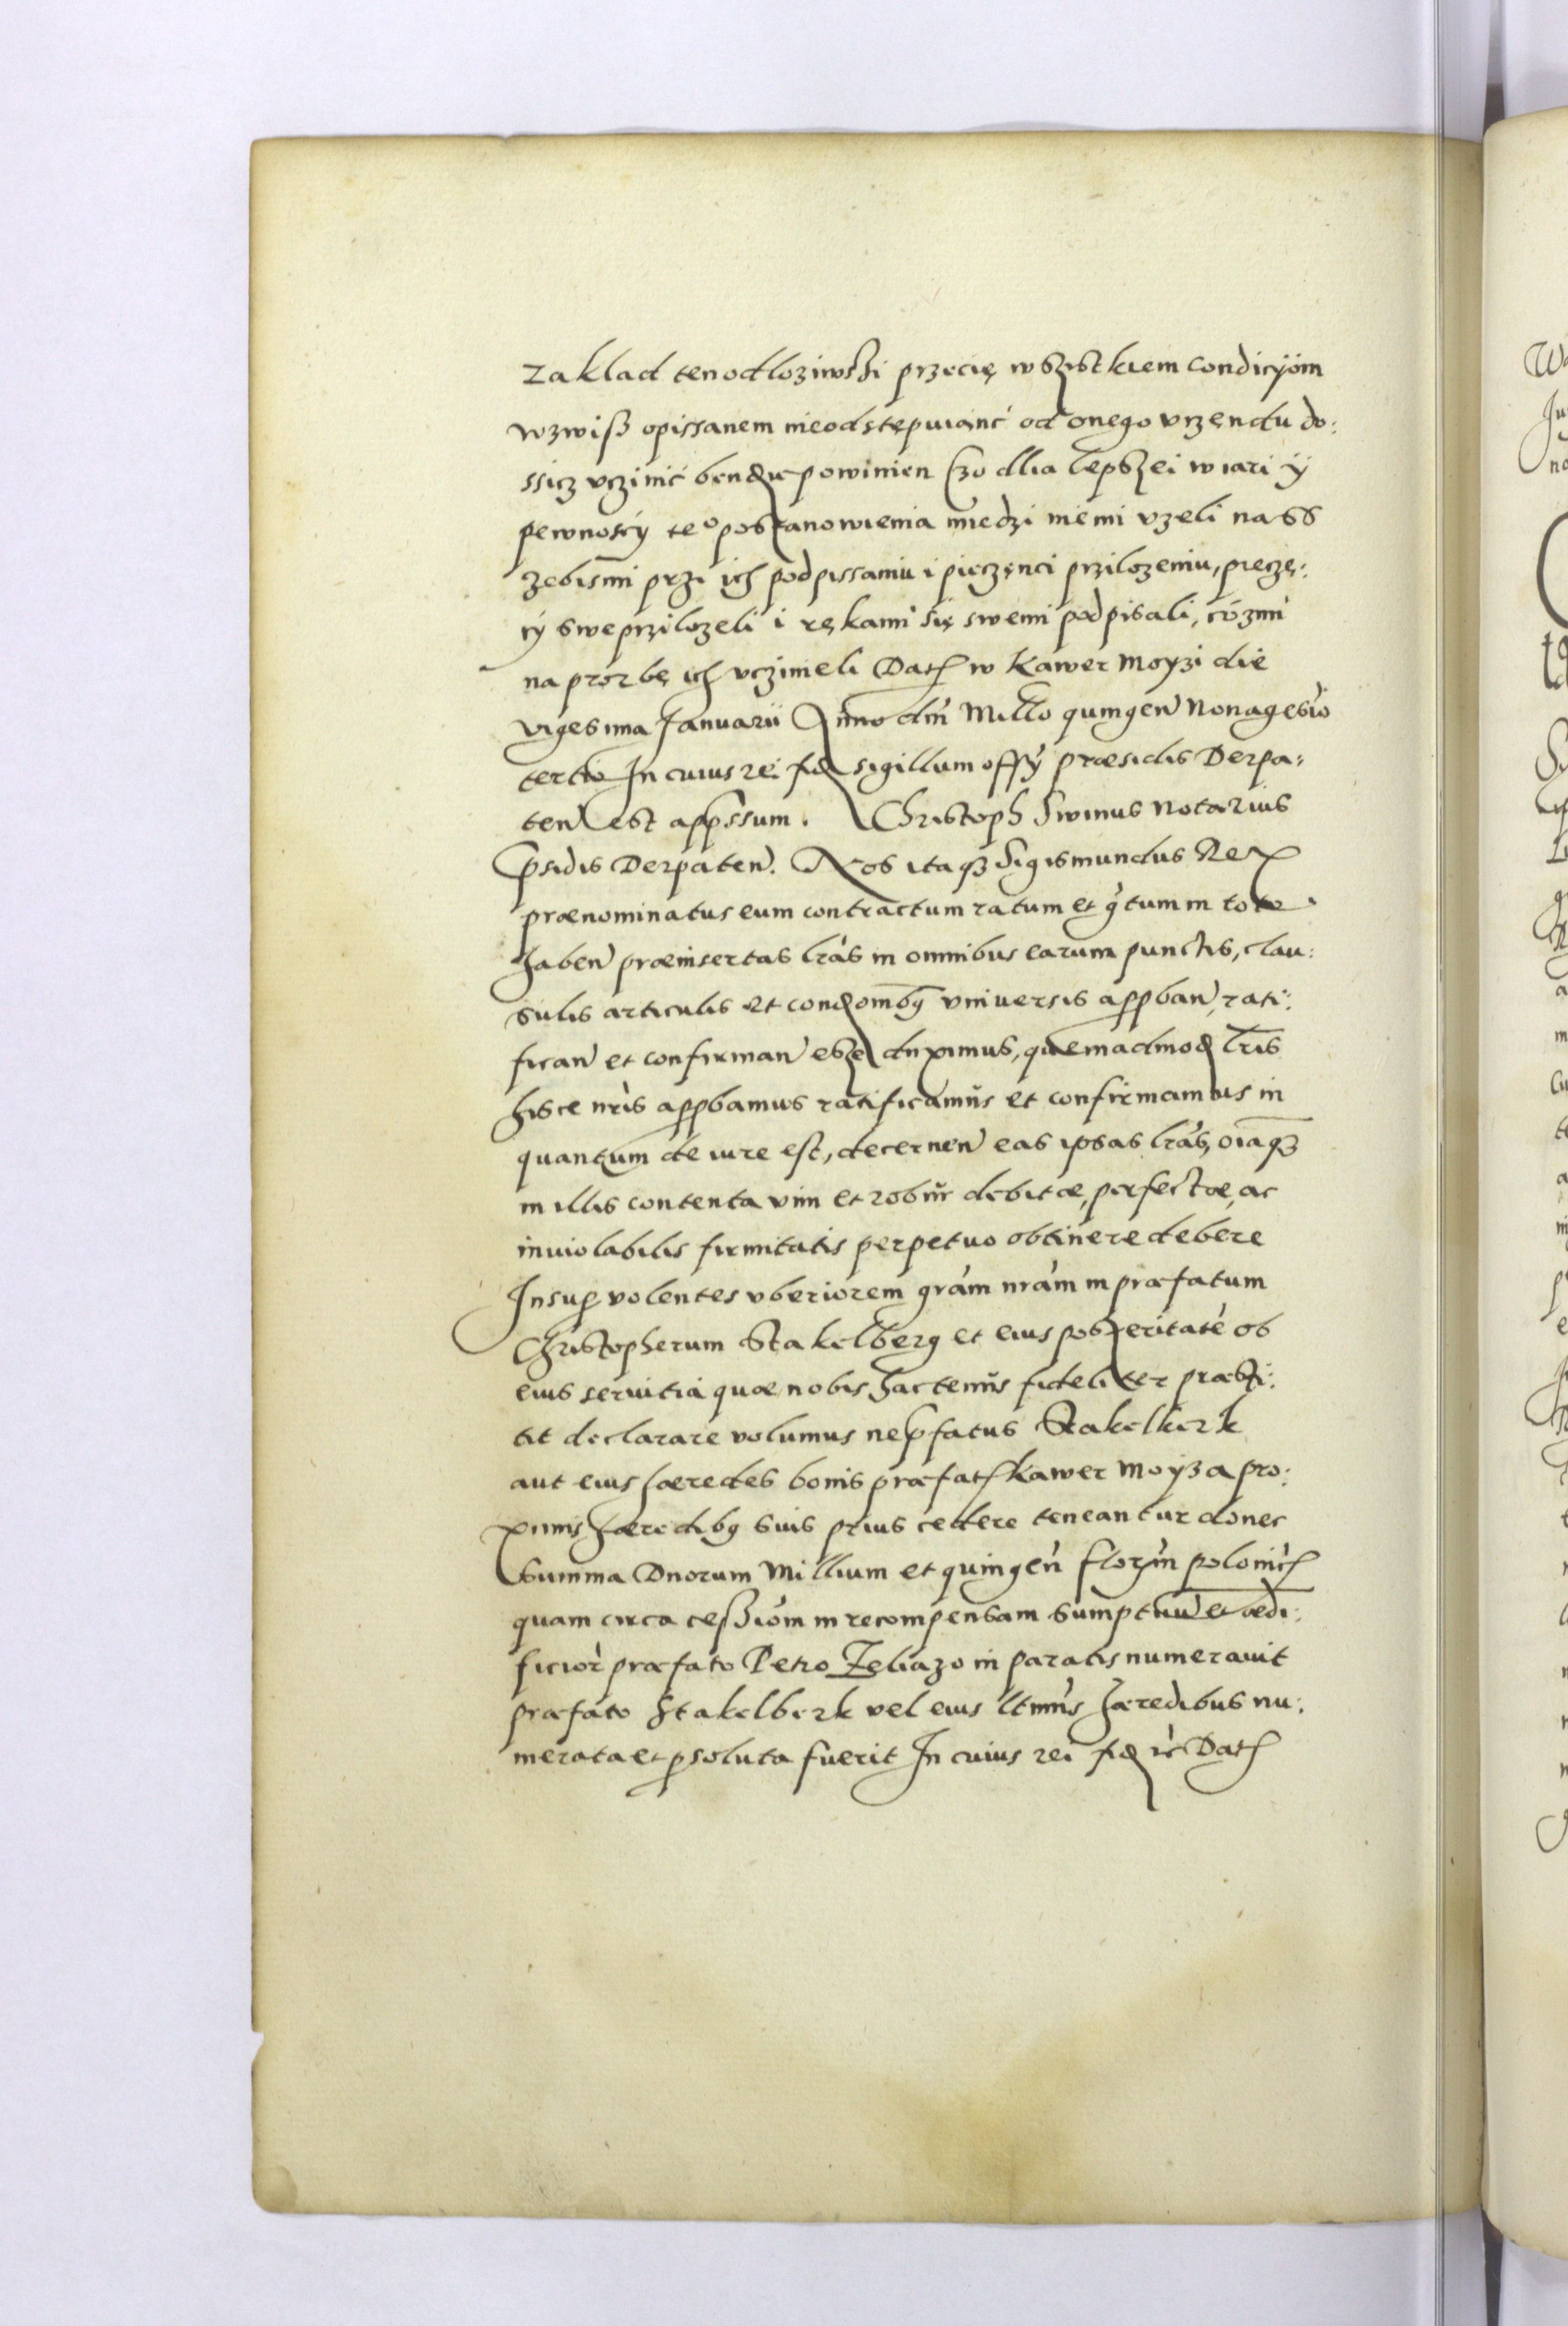 zaklad ten odloziwshi przecię wszistkiem condicÿom
wzwiß opissanem nieodstępuiąnć od onego vrzęndu do:
ssicz vczinić bendzie powinien Czo dlia lepszei wiari ÿ
pewnoscÿ te⁰ postanowienia miedzi niemi vzeli nass
zebismi prze ich podpissaniu i pieczęnci przilozeniu, pieczę:
cÿ swe przilozeli i rękami się swemi podpisali, cozmi
na prozbę ich vczineli Dat w Kawer Moyzi die
vigesima Januarii Anno dni Millo quingen Nonagesio
tertio In cuius rei fid sigillum offÿ præsidis Derpa:
ten est appssum. Christoph Swinus Notarius
psidis Derpaten. Nos itaqз Sigismundus Rex
prænominatus eum contractum ratum et gtum in toto
haben præinsertas lras in omnibus earum punctis, clau:
sulis articulis et condombq vniuersis appban, rati:
fican et confirman esse duximus, quemadmod lris
hisce nris appbamus ratificamus et confirmamus in
quantum de iure est, decernen eas ipsas lras, oiaqз
in illis contenta vim et robur debitæ, perfectæ, ac
inuiolabilis firmitatis perpetuo obtinere debere
Insup volentes vberiorem gram nram in præfatum
Christopherum Stakelberg et eius posteritate ob
eius seruitia quæ nobis hactenus fideliter præsti:
tit declarare volumus ne pfatus Stakelkerk
aut eius hæredes bonis præfat Kawer Moÿza pro:
ximis hæredibq suis prius cedere teneantur donec
summa Duorum Millium et quingen florm polonic
quam circa cessiom in recompensam sumptuu et ædi:
ficior præfato Petro Zeliazo in paratis numerauit
præfato Stakelberk vel eius ltimis hæredibus nu:
merata et psoluta fuerit In cuius rei fid ic Dat